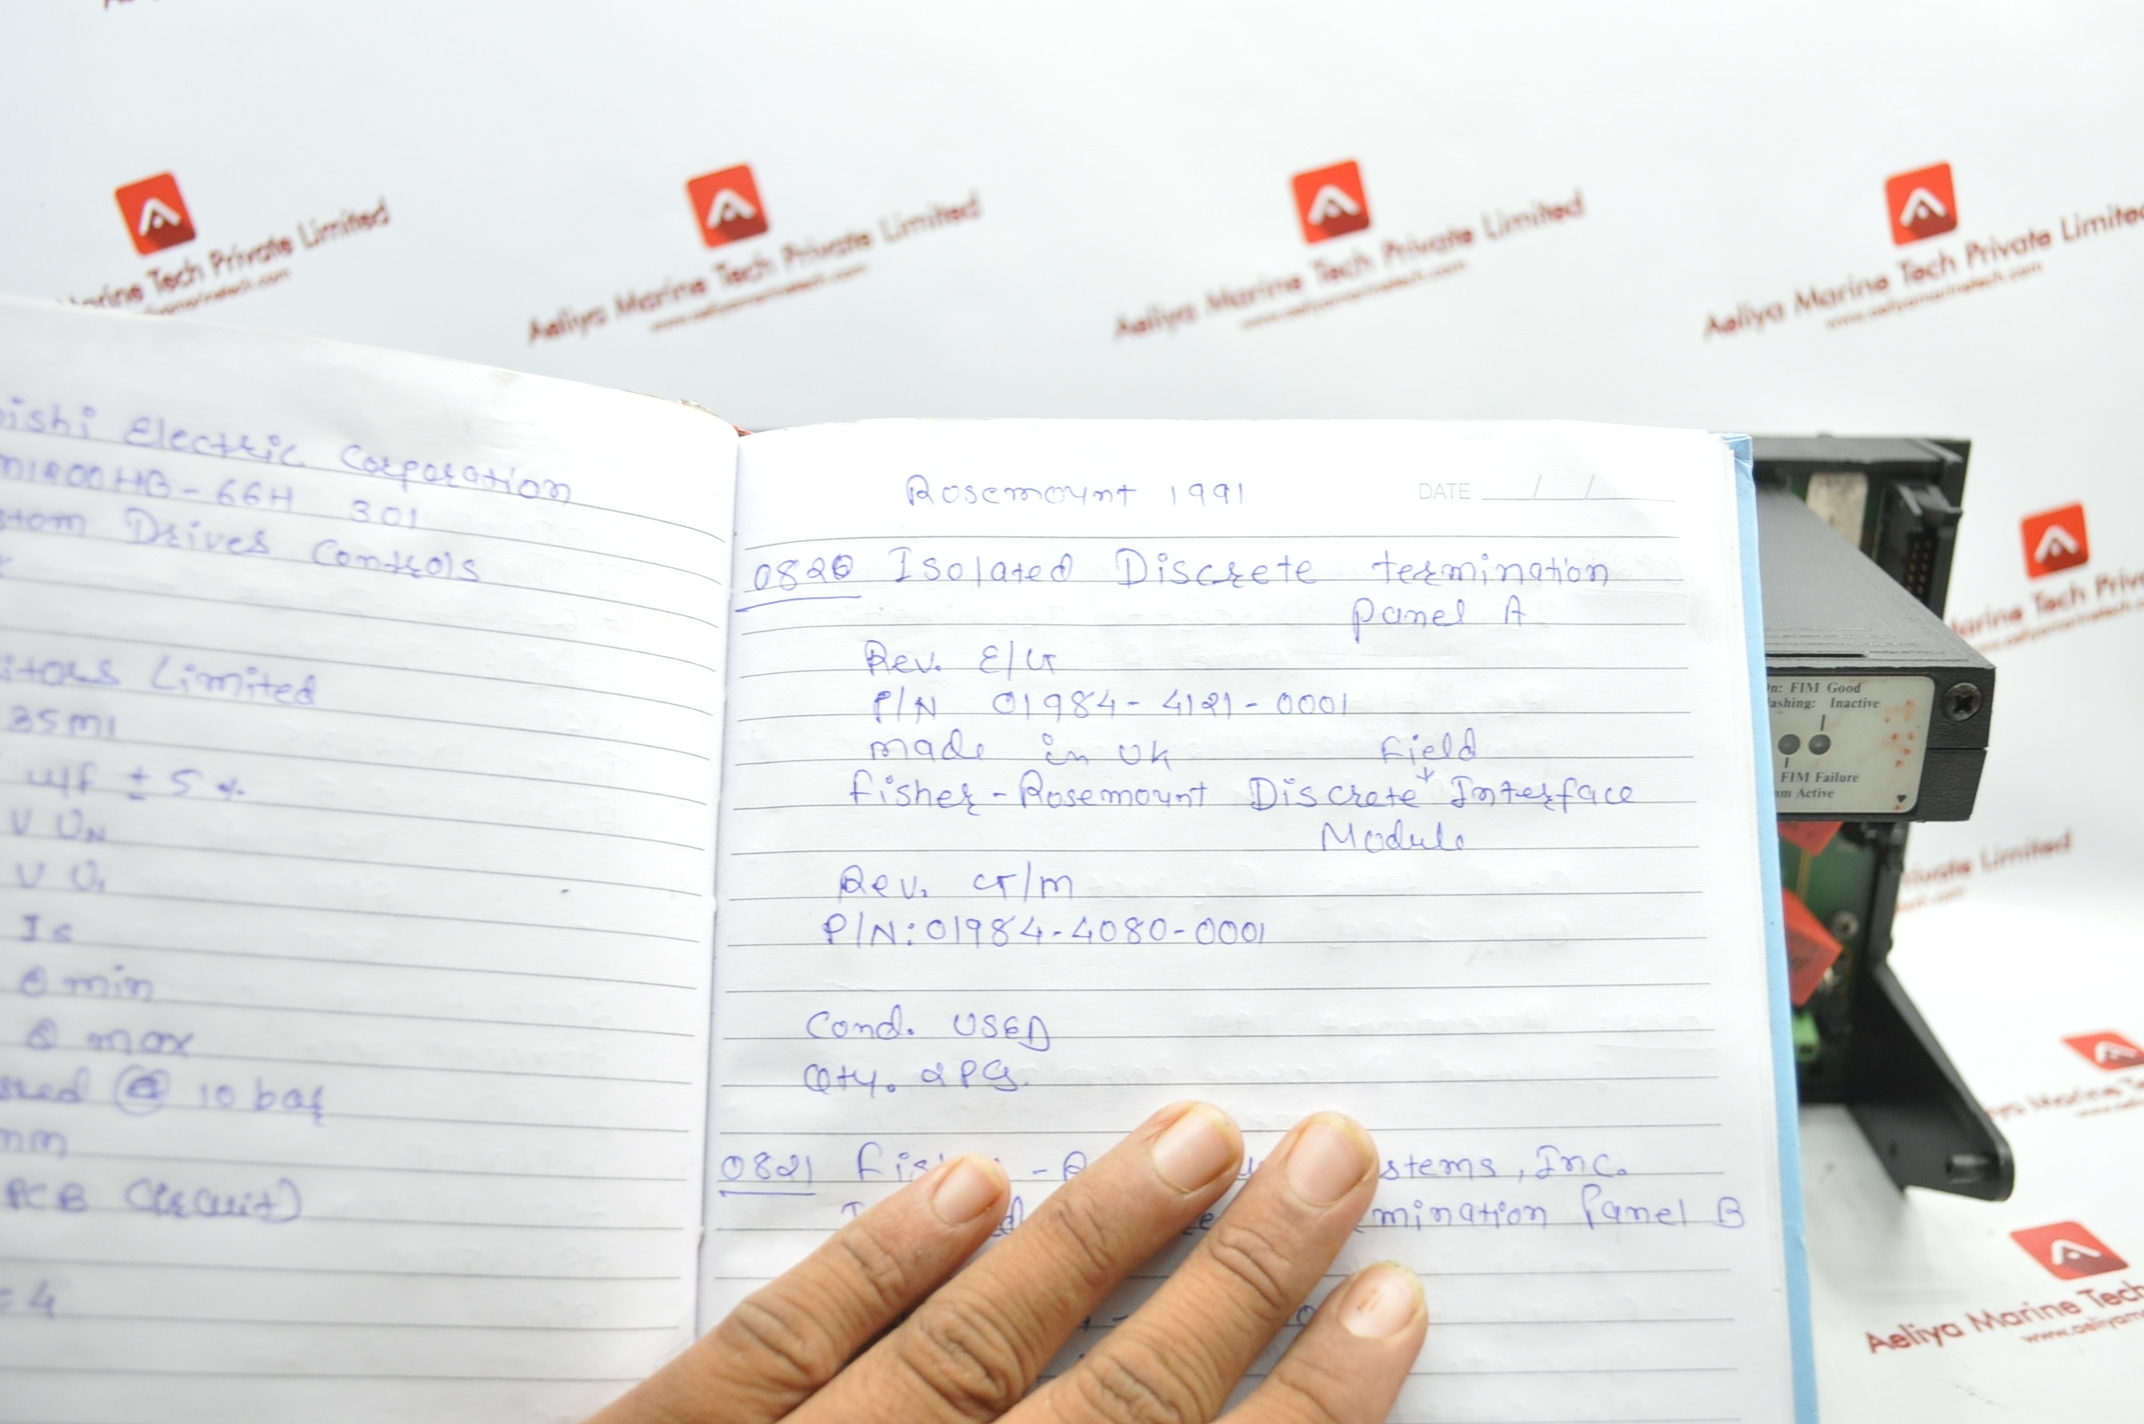 Marine Tech Private Limited
Aeliya Marine Tech Private Limited
www.aeliyamarinetech.com
Aeliya Marine Tech Private Limited
www.aeliyamarinetech.com
Aeliya Marine Tech Private Limited
www.aeliyamarinetech.com
Electric Corporation
66H 301
Drives Controls
Limited
± 5 %
V UN
Is
min
max
@ 10 bar
PCB Circuit)
= 4
Rosemount 1991
DATE / /
0820 Isolated Discrete termination
Panel A
Rev. E/G
P/N 01984-4121-0001
made in UK Field
Fisher-Rosemount Discrete Interface
Module
Rev. G/M
P/N:01984-4080-0001
Cond. USED
Qty. 2 PCS.
0821
stems, Inc.
mination Panel B
FIM Good
Inactive
FIM Failure
Active
Marine Tech
Limited
Marine Tech
Aeliya Marine Tech